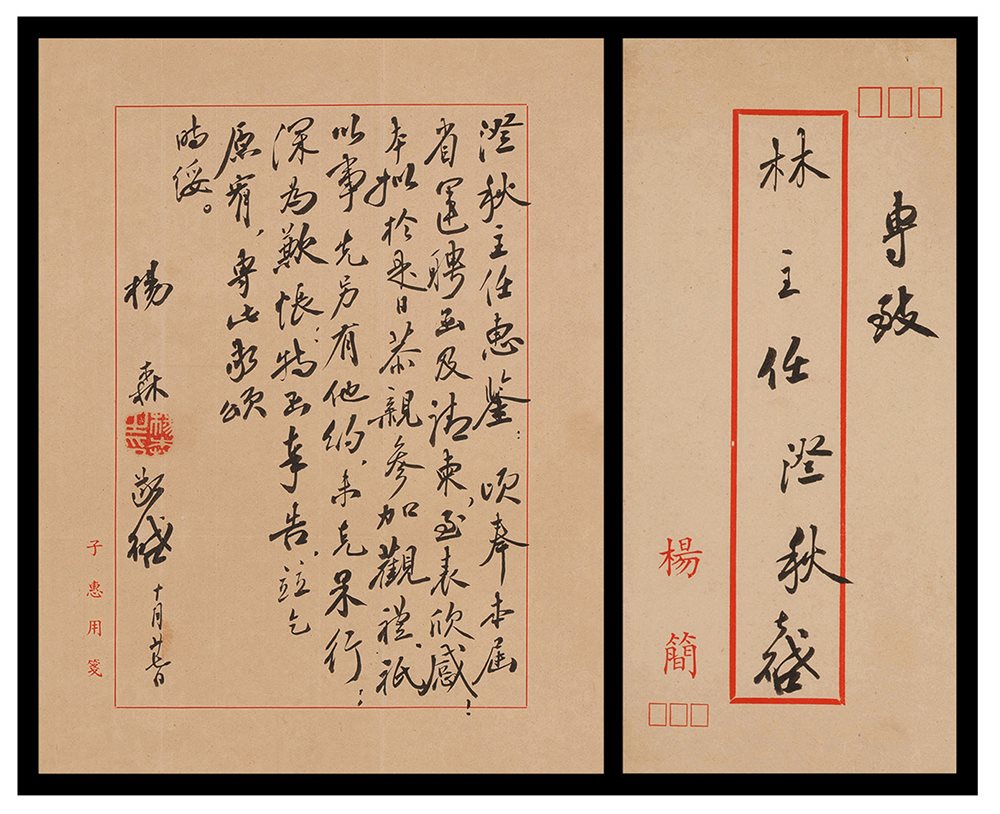 澄秋主任惠鑒：頃奉本屆
省運聘函及請柬，至表欣感！
本擬於是日恭親參加觀禮，祇
以事先另有他約，未克果行；
深為歉悵；特函奉告，竝乞
原宥，專此敬頌
時綏。
楊　森　敬啟　十月廿七日
子惠用箋
專致
林主任澄秋啟
楊簡